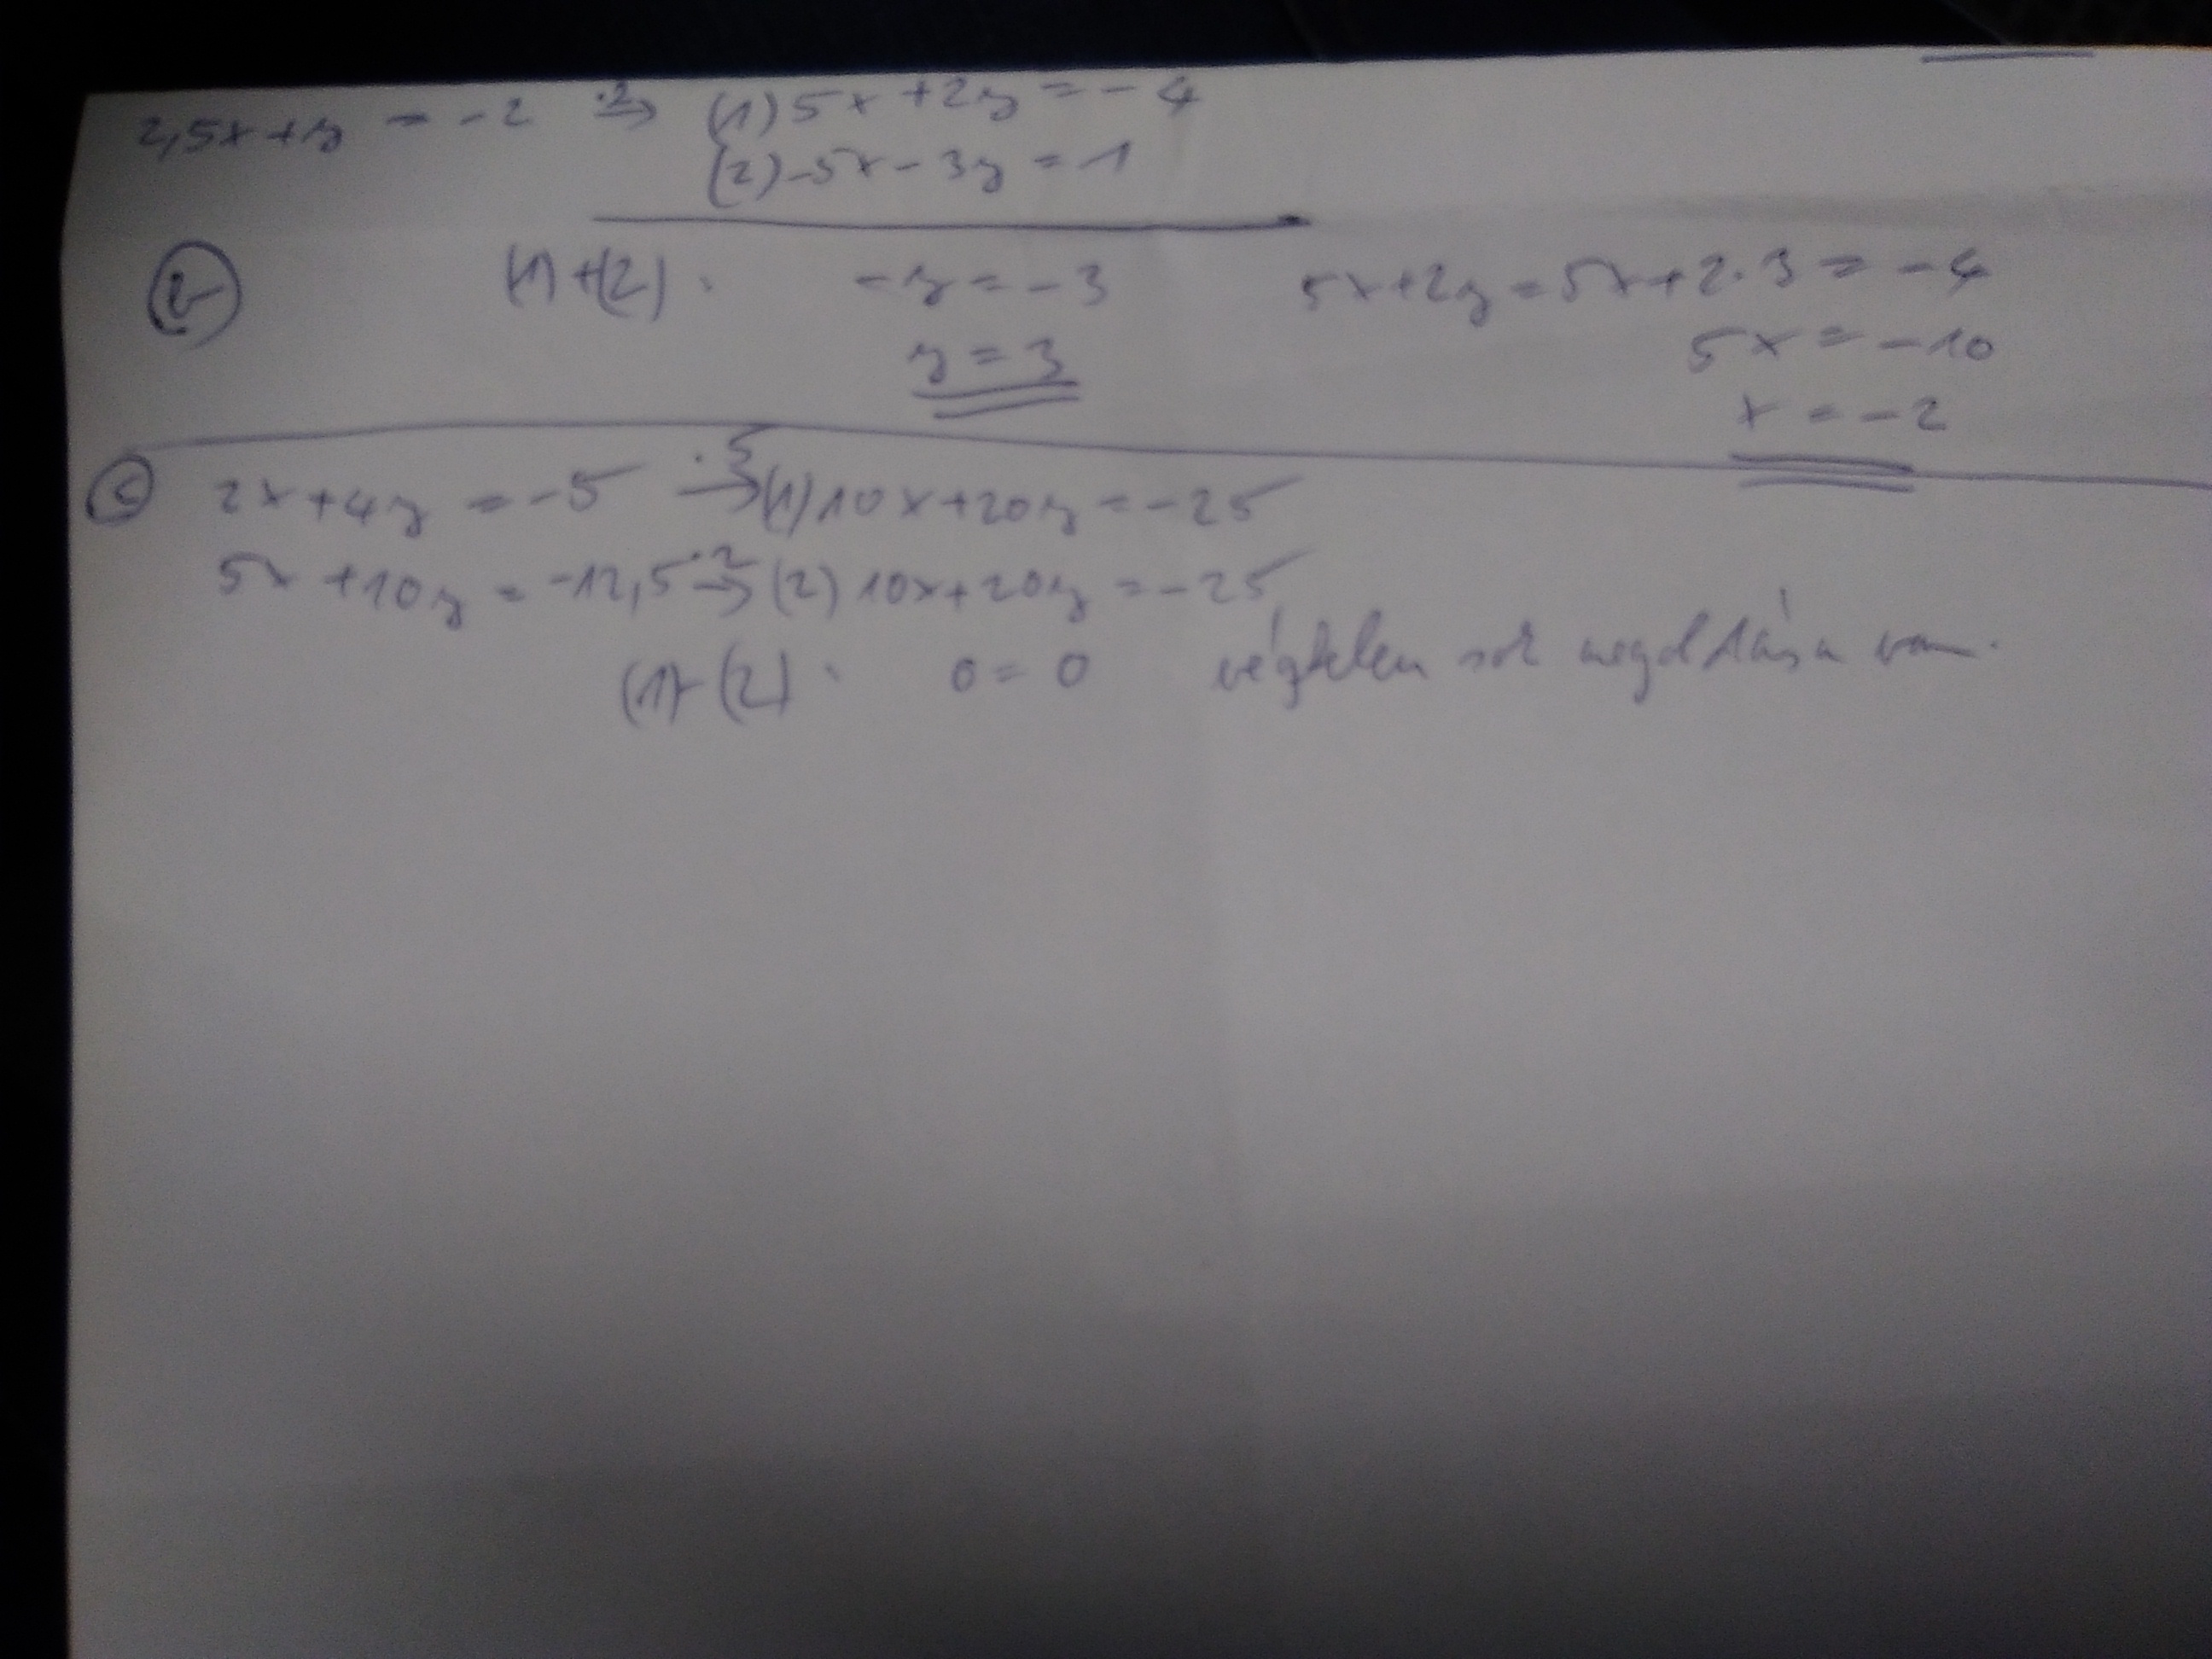 2,5x+y = -2 ·2→ (1) 5x+2y = -4
(2) -5x-3y = 1
b (1)+(2): -y = -3 5x+2y = 5x+2·3 = -4
y = 3 5x = -10
x = -2
c 2x+4y = -5 ·5→ (1) 10x+20y = -25
5x+10y = -12,5 ·2→ (2) 10x+20y = -25
(1)-(2): 0 = 0 végtelen sok megoldása van.